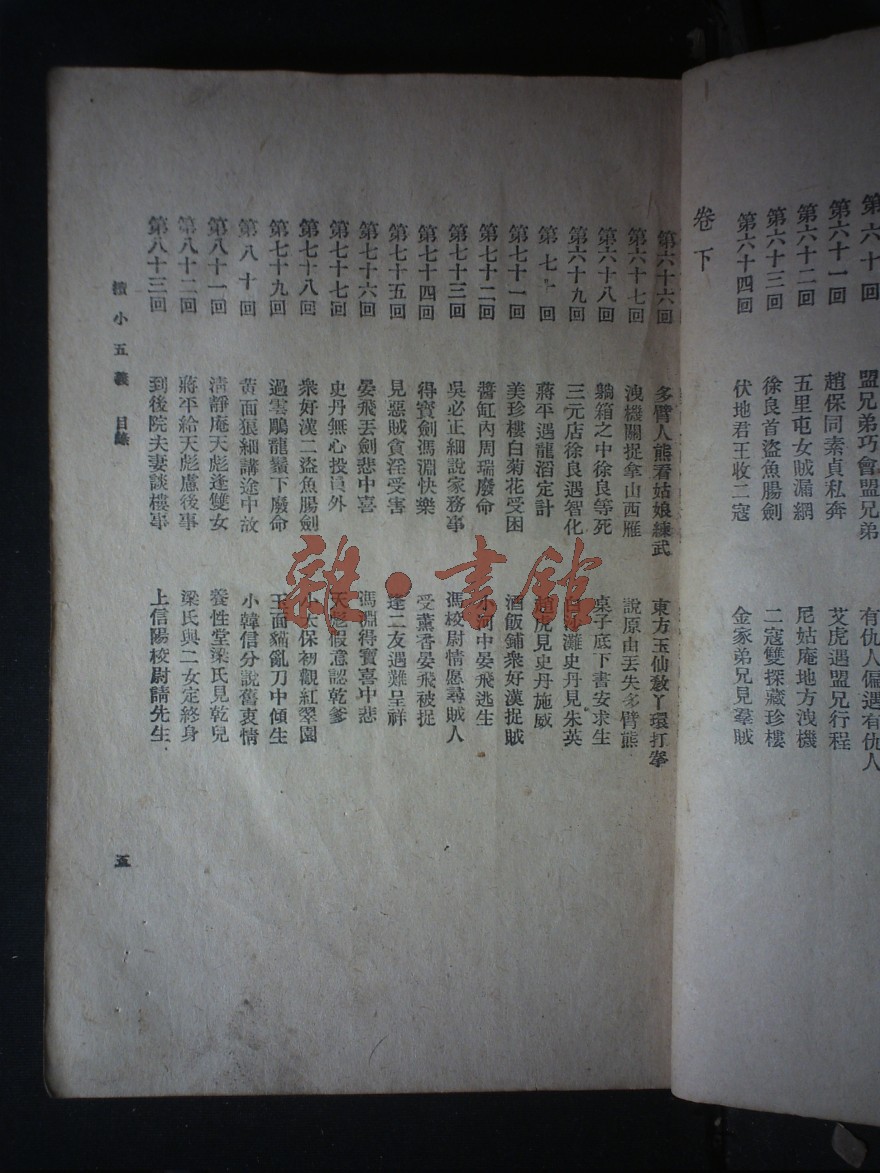 第六十回　盟兄弟巧會盟兄弟　有仇人偏遇有仇人
第六十一回　趙保同素貞私奔　艾虎遇盟兄行程
第六十二回　五里屯女賊漏網　尼姑庵地方洩機
第六十三回　徐良首盜魚腸劍　二寇雙探藏珍樓
第六十四回　伏地君王收二寇　金家弟兄見羣賊
卷下
第六十六回　多臂人熊看姑娘練武　東方玉仙教丫環打拳
第六十七回　洩機關捉拿山西雁　說原由丟失多臂熊
第六十八回　躺箱之中徐良等死　桌子底下書安求生
第六十九回　三元店徐良遇智化　白沙灘史丹見朱英
第七十回　蔣平遇龍滔定計　趙虎見史丹施威
第七十一回　美珍樓白菊花受困　酒飯鋪衆好漢捉賊
第七十二回　醬缸內周瑞廢命　小河中晏飛逃生
第七十三回　吳必正細說家務事　馮校尉情愿尋賊人
第七十四回　得寶劍馮淵快樂　受薰香晏飛被捉
第七十五回　見惡賊貪淫受害　逢二友遇難呈祥
第七十六回　晏飛丟劍悲中喜　馮淵得寶喜中悲
第七十七回　史丹無心投員外　天彪假意認乾爹
第七十八回　衆好漢二盜魚腸劍　小太保初觀紅翠園
第七十九回　過雲鵰龍蠻下廢命　玉面貓亂刀中傾生
第八十回　黃面狼細講途中故　小韓信分說舊衷情
第八十一回　清靜庵天彪逢雙女　養性堂梁氏見乾兒
第八十二回　蔣平給天彪慮後事　梁氏與二女定終身
第八十三回　到後院夫妻談樓事　上信陽校尉請先生
續小五義　目錄
五
雜·書館